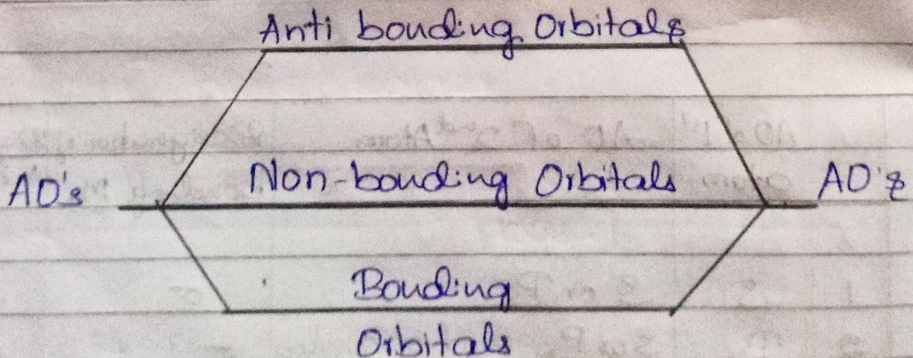 Anti bonding Orbitals
AO's Non-bonding Orbitals AO's
Bonding
Orbitals